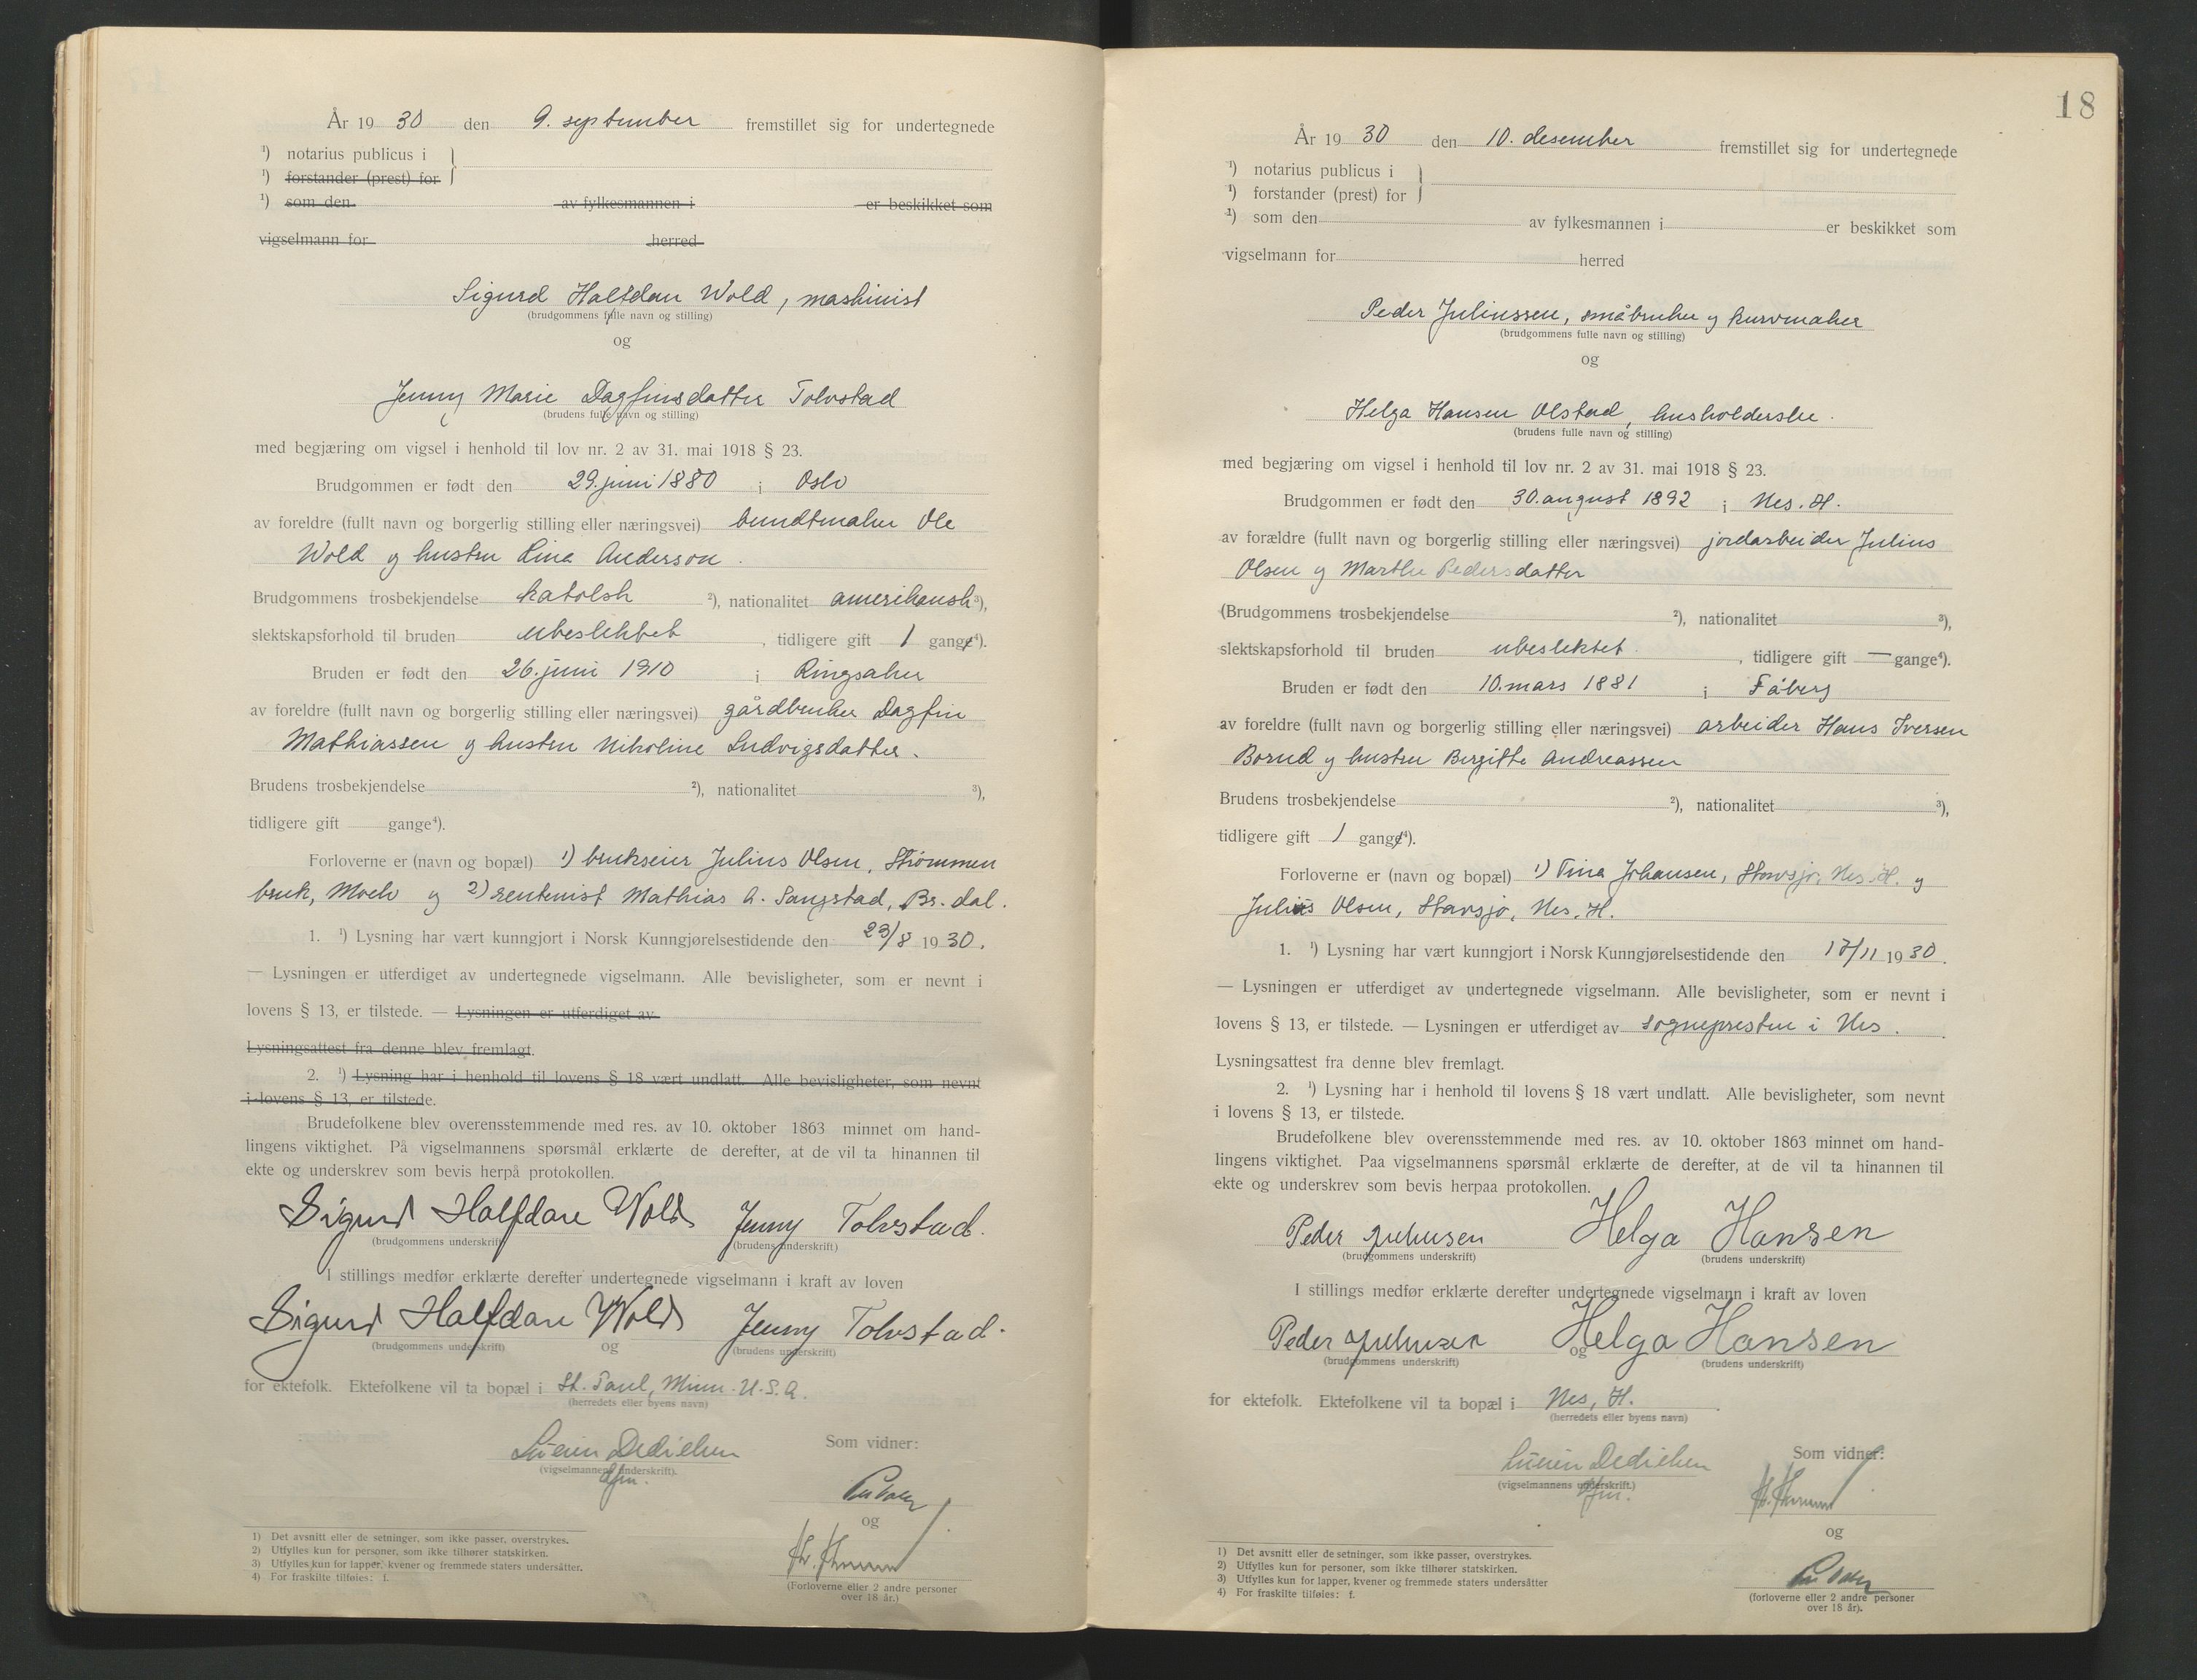 År 19 30 den 9. september fremstillet sig for undertegnede
¹) notarius publicus i
¹) forstander (prest) for
¹) som den av fylkesmannen i er beskikket som
vigselmann for herred
Sigurd Halfdan Wold, maskinist
(brudgommens fulle navn og stilling)
og
Jenny Marie Dagfinsdatter Tolvstad
(brudens fulle navn og stilling)
med begjæring om vigsel i henhold til lov nr. 2 av 31. mai 1918 § 23.
Brudgommen er født den 29. juni 1880 i Oslo
av foreldre (fullt navn og borgerlig stilling eller næringsvei) bundtmaker Ole
Wold og hustru Lina Anderson.
Brudgommens trosbekjendelse katolsk ²), nationalitet amerikansk ³),
slektskapsforhold til bruden ubeslektet, tidligere gift 1 gange⁴).
Bruden er født den 26. juni 1910 i Ringsaker
av foreldre (fullt navn og borgerlig stilling eller næringsvei) gårdbruker Dagfin
Mathiassen og hustru Nikoline Ludvigsdatter.
Brudens trosbekjendelse ²), nationalitet ³),
tidligere gift gange⁴).
Forloverne er (navn og bopæl) 1) brukseier Julius Olsen, Strömmen
bruk, Moelv og 2) rentenist Mathias A. Sangstad, Br. dal.
1. ¹) Lysning har vært kunngjort i Norsk Kunngjørelsestidende den 23/8 19 30.
— Lysningen er utferdiget av undertegnede vigselmann. Alle bevisligheter, som er nevnt i
lovens § 13, er tilstede. — Lysningen er utferdiget av
Lysningsattest fra denne blev fremlagt.
2. ¹) Lysning har i henhold til lovens § 18 vært undlatt. Alle bevisligheter, som nevnt
i lovens § 13, er tilstede.
Brudefolkene blev overensstemmende med res. av 10. oktober 1863 minnet om hand-
lingens viktighet. På vigselmannens spørsmål erklærte de derefter, at de vil ta hinannen til
ekte og underskrev som bevis herpå protokollen.
Sigurd Halfdan Wold Jenny Tolvstad.
(brudgommens underskrift) (brudens underskrift)
I stillings medfør erklærte derefter undertegnede vigselmann i kraft av loven
Sigurd Halfdan Wold Jenny Tolvstad.
(brudgommens underskrift) og (brudens underskrift)
for ektefolk. Ektefolkene vil ta bopæl i St. Paul, Minn. U.S.A.
(herredets eller byens navn)
Dedichen
Som vidner:
(vigselmannens underskrift).
og
(Forloverne eller 2 andre personer
over 18 år.)
1) Det avsnitt eller de setninger, som ikke passer, overstrykes.
2) Utfylles kun for personer, som ikke tilhører statskirken.
3) Utfylles kun for lapper, kvener og fremmede staters undersåtter.
4) For fraskilte tilføies: f.
18
År 19 30 den 10. desember fremstillet sig for undertegnede
¹) notarius publicus i
¹) forstander (prest) for
¹) som den av fylkesmannen i er beskikket som
vigselmann for herred
Peder Juliussen, småbruker og kurvmaker
(brudgommens fulle navn og stilling)
og
Helga Hansen Olstad, husholderske.
(brudens fulle navn og stilling)
med begjæring om vigsel i henhold til lov nr. 2 av 31. mai 1918 § 23.
Brudgommen er født den 30. august 1892 i Nes. H.
av forældre (fullt navn og borgerlig stilling eller næringsvei) jordarbeider Julius
Olsen og Marthe Pedersdatter
(Brudgommens trosbekjendelse ²), nationalitet ³),
slektskapsforhold til bruden ubeslektet, tidligere gift — gange⁴).
Bruden er født den 10. mars 1881 i Fåberg
av foreldre (fullt navn og borgerlig stilling eller næringsvei) arbeider Hans Iversen
Borud og hustru Bergitte Andreassen
Brudens trosbekjendelse ²), nationalitet ³),
tidligere gift 1 gange⁴).
Forloverne er (navn og bopæl) 1) Tina Johansen, Stavsjø, Nes. H. og
Julius Olsen, Stavsjø, Nes. H.
1. ¹) Lysning har vært kunngjort i Norsk Kunngjørelsestidende den 17/11 19 30.
— Lysningen er utferdiget av undertegnede vigselmann. Alle bevisligheter, som er nevnt i
lovens § 13, er tilstede. — Lysningen er utferdiget av sognepresten i Nes.
Lysningsattest fra denne blev fremlagt.
2. ¹) Lysning har i henhold til lovens § 18 vært undlatt. Alle bevisligheter, som nevnt
i lovens § 13, er tilstede.
Brudefolkene blev overensstemmende med res. av 10. oktober 1863 minnet om hand-
lingens viktighet. Paa vigselmannens spørsmål erklærte de derefter, at de vil ta hinannen til
ekte og underskrev som bevis herpaa protokollen.
Peder Juliusen Helga Hansen
(brudgommens underskrift) (brudens underskrift)
I stillings medfør erklærte derefter undertegnede vigselmann i kraft av loven
Peder Juliusen Helga Hansen
(brudgommens underskrift) og (brudens underskrift)
for ektefolk. Ektefolkene vil ta bopæl i Nes, H.
(herredets eller byens navn)
Dedichen
Som vidner:
(vigselmannens underskrift.)
og
(forloverne eller 2 andre personer
over 18 år).
1) Det avsnitt eller de setninger, som ikke passer, overstrykes.
2) Utfylles kun for personer, som ikke tilhører statskirken.
3) Utfylles kun for lapper, kvener og fremmede staters undersåtter
4) For fraskilte tilføies: f.